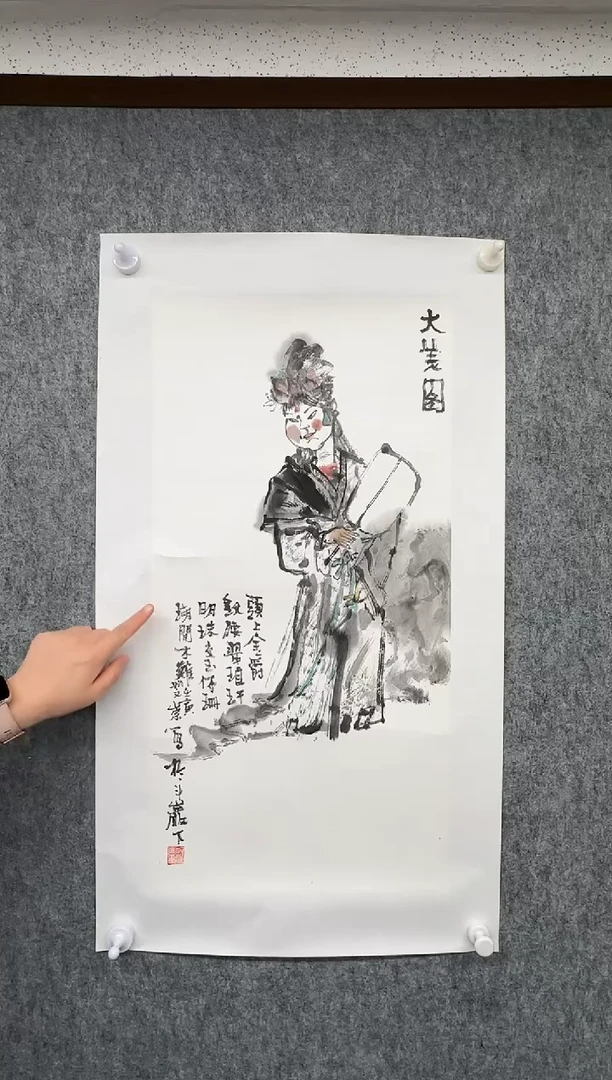 大美图
頭上金爵
釵腰翠琅玕
明珠交玉体珊
瑚間木難 寫於斗巖下